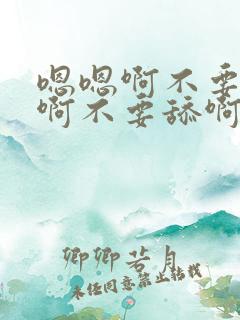 嗯嗯啊不要
啊不要舔啊
卿卿若月
未经同意禁止转载